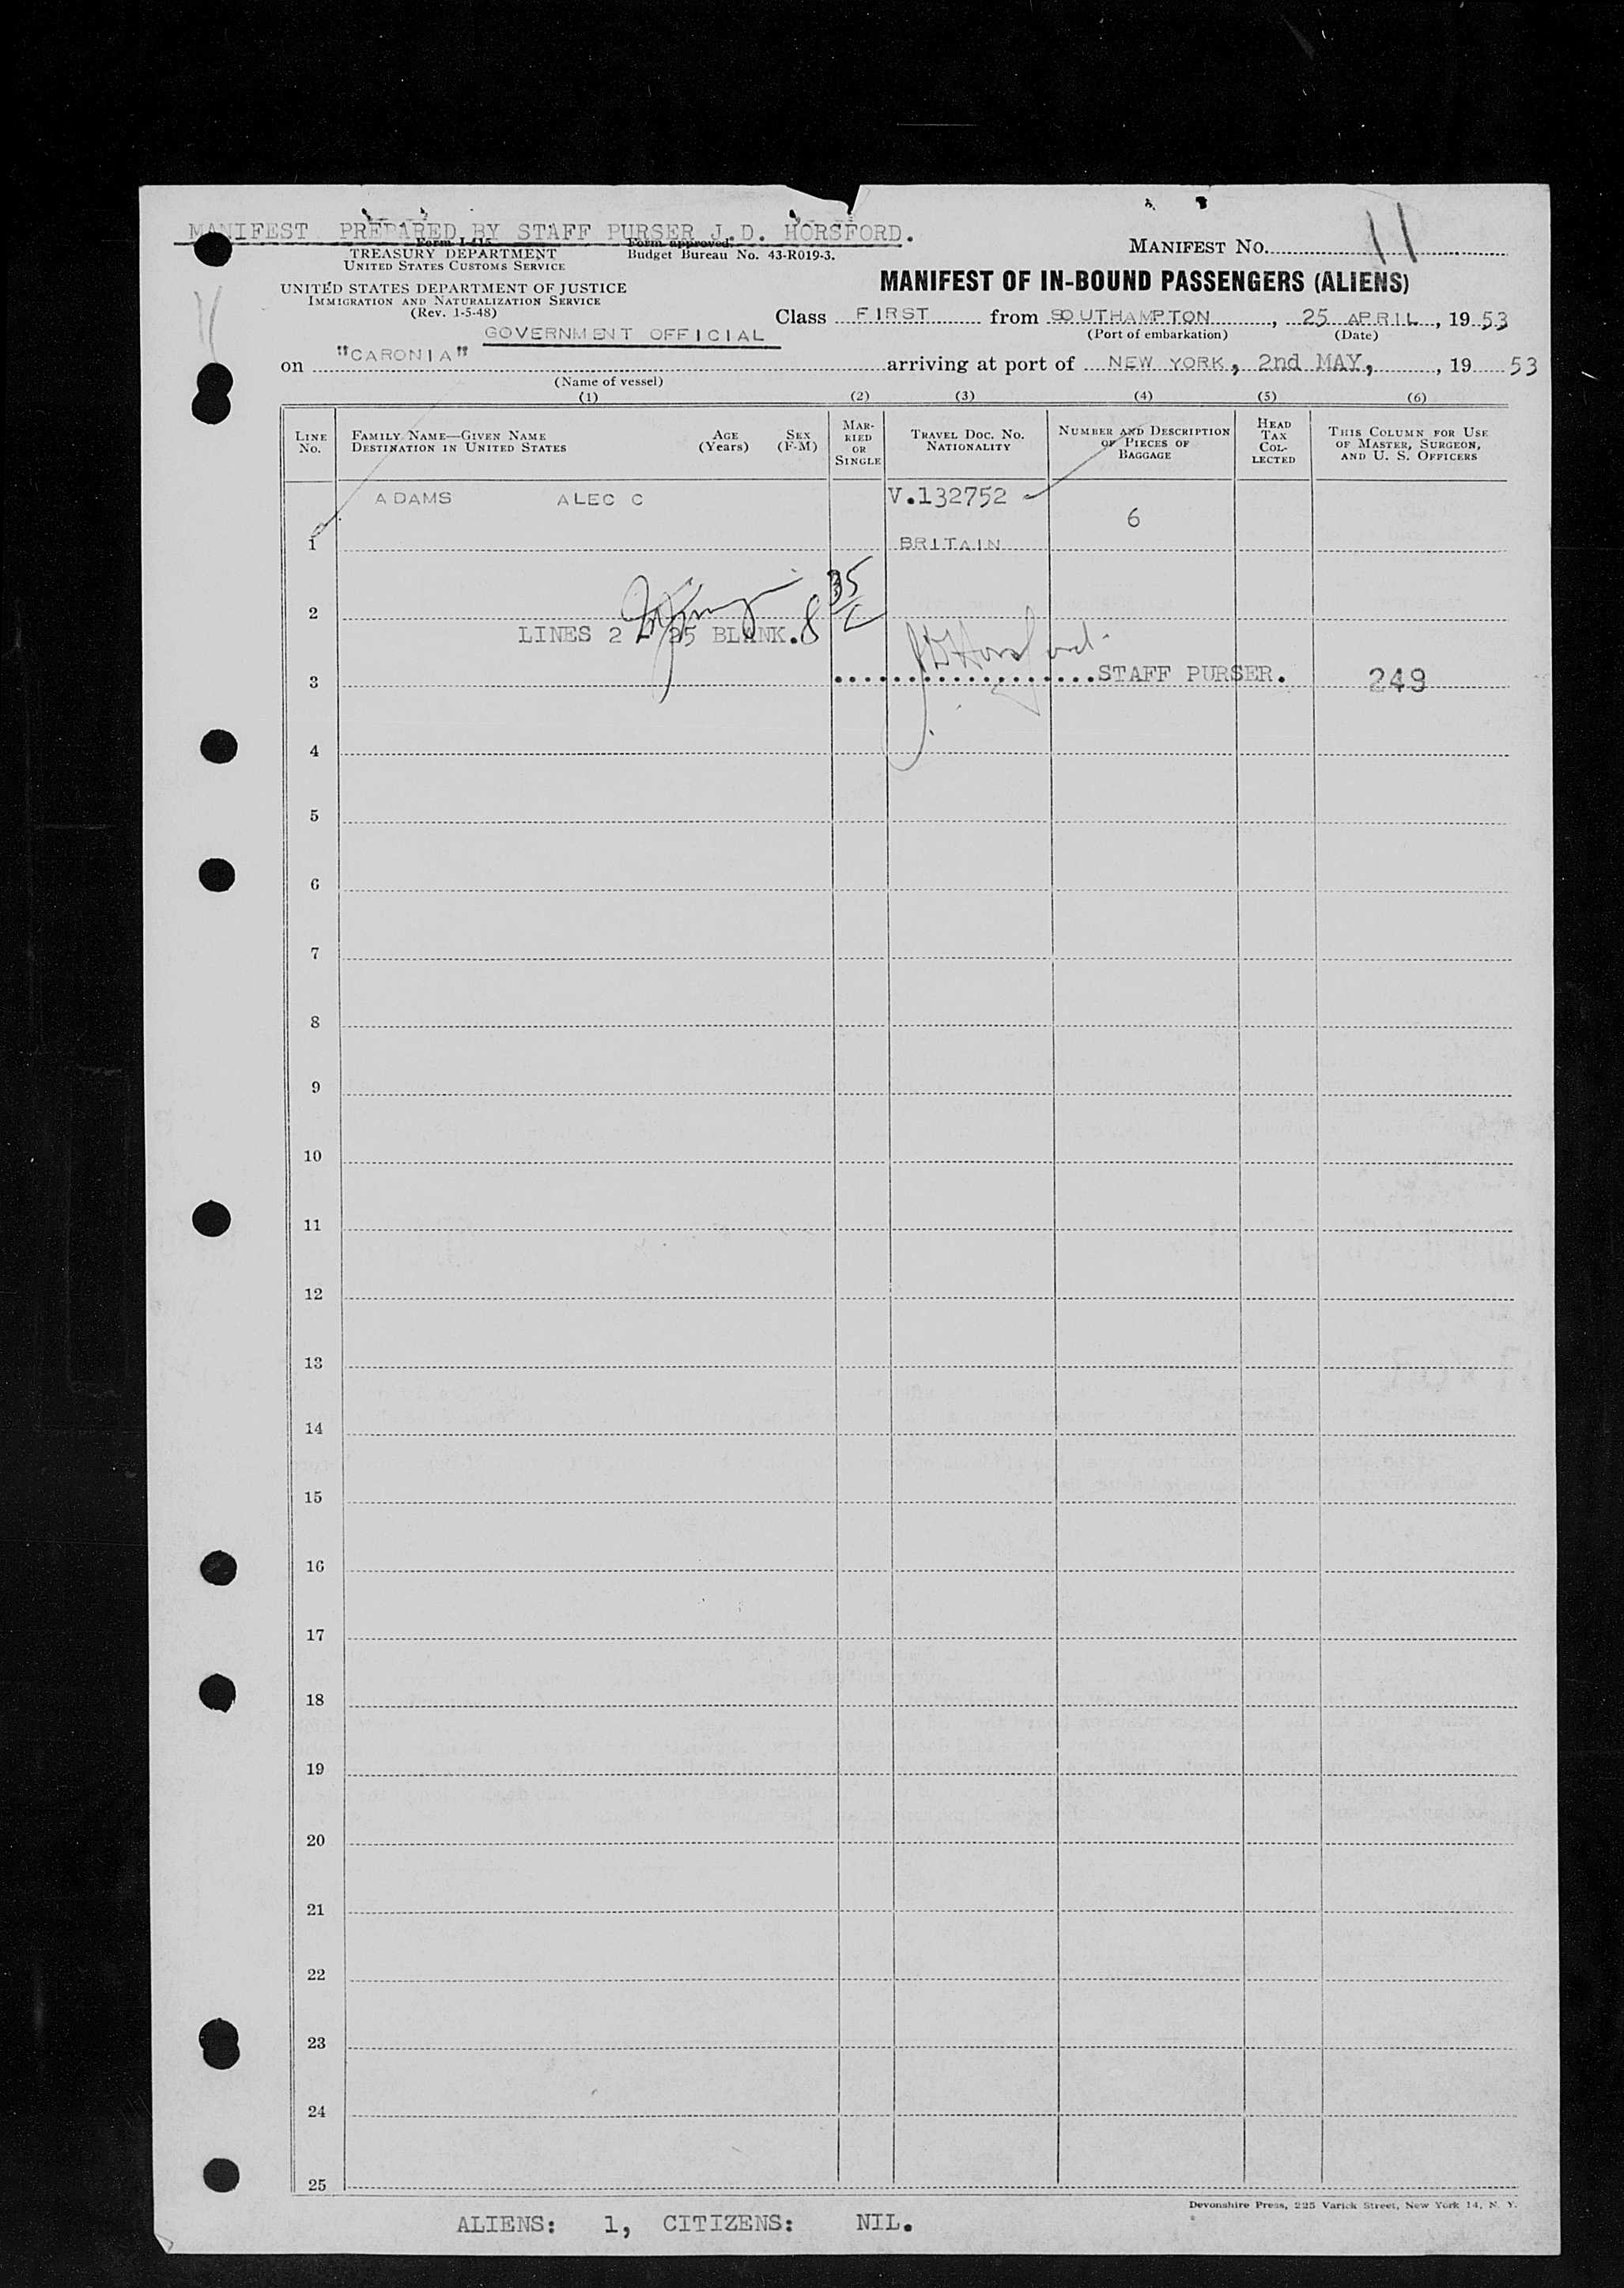 MANIFEST PREPARED BY STAFF PURSER J.D. HORSFORD.
Form I-415
TREASURY DEPARTMENT
UNITED STATES CUSTOMS SERVICE
Form approved.
Budget Bureau No. 43-R019-3.
MANIFEST NO. 11
UNITED STATES DEPARTMENT OF JUSTICE
IMMIGRATION AND NATURALIZATION SERVICE
(Rev. 1-5-48)
MANIFEST OF IN-BOUND PASSENGERS (ALIENS)
Class FIRST from SOUTHAMPTON, 25 APRIL, 1953
(Port of embarkation) (Date)
GOVERNMENT OFFICIAL
on "CARONIA" arriving at port of NEW YORK, 2nd MAY, , 19 53
(Name of vessel)
(1) (2) (3) (4) (5) (6)
LINE No.
FAMILY NAME—GIVEN NAME
DESTINATION IN UNITED STATES
AGE (Years)
SEX (F-M)
MARRIED OR SINGLE
TRAVEL DOC. NO. NATIONALITY
NUMBER AND DESCRIPTION OF PIECES OF BAGGAGE
HEAD TAX COLLECTED
THIS COLUMN FOR USE OF MASTER, SURGEON, AND U. S. OFFICERS
ADAMS ALEC C V.132752
6
1 BRITAIN
2
LINES 2 25 BLANK.
JD Horsford
3 STAFF PURSER. 249
4
5
6
7
8
9
10
11
12
13
14
15
16
17
18
19
20
21
22
23
24
25
Devonshire Press, 225 Varick Street, New York 14, N. Y.
ALIENS: 1, CITIZENS: NIL.